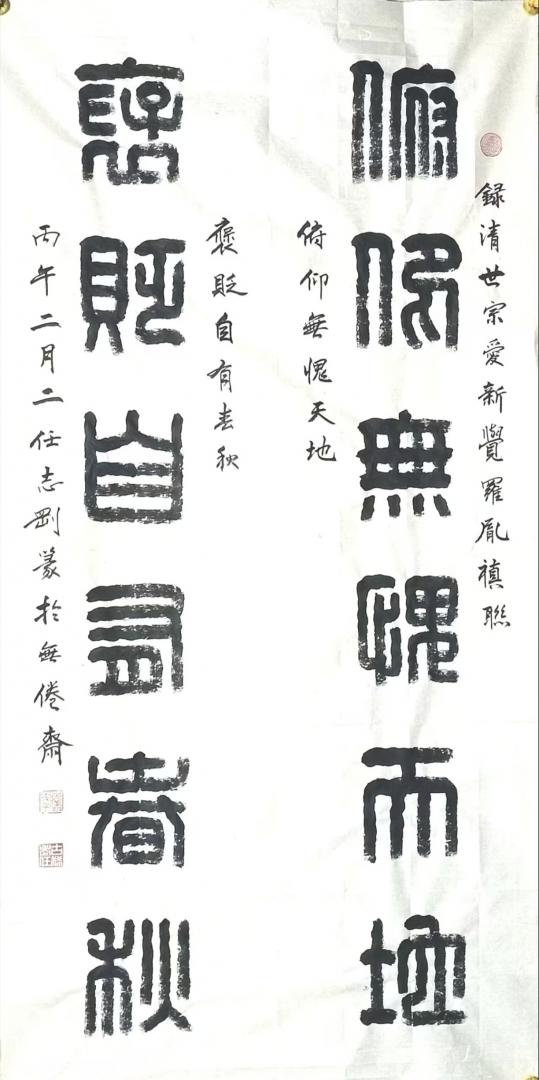 錄清世宗愛新覺羅胤禛聯
俯仰無愧天地
俯仰無愧天地
褒貶自有春秋
褒貶自有春秋
丙午二月二任志剛篆於無倦齋